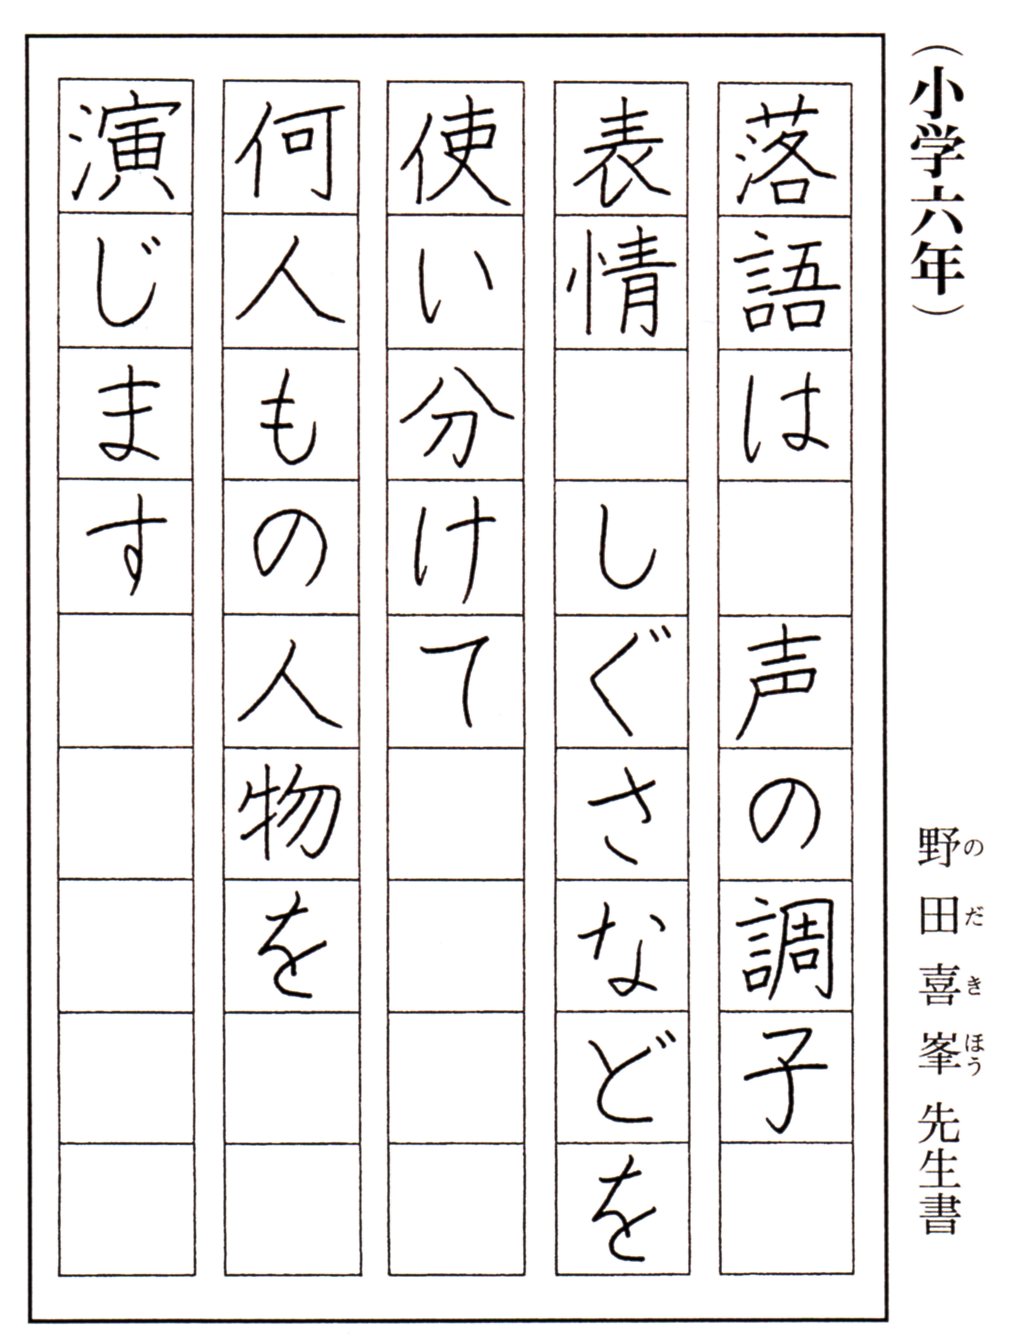 （小学六年）
野田喜峯先生書
のだきほう
落語は　声の調子
表情　しぐさなどを
使い分けて
何人もの人物を
演じます